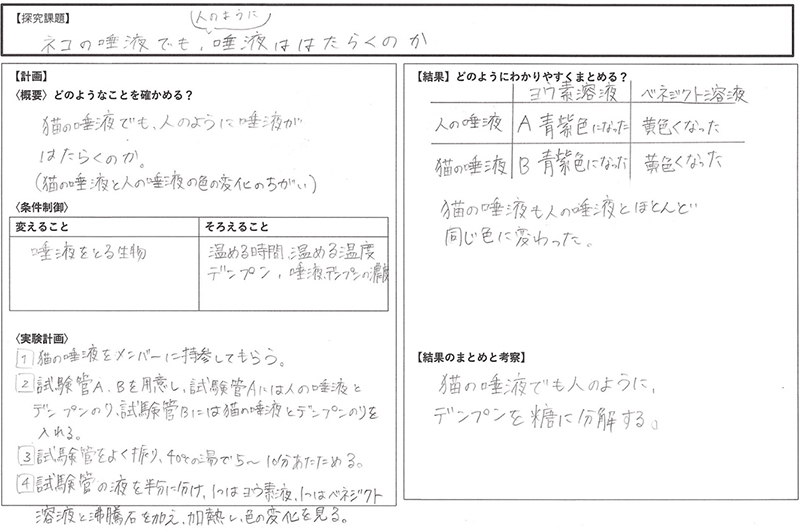 【探究課題】
人のように
ネコの唾液でも、唾液ははたらくのか
【計画】
〈概要〉どのようなことを確かめる？
猫の唾液でも、人のように唾液が
はたらくのか。
(猫の唾液と人の唾液の色の変化のちがい)
〈条件制御〉
変えること
そろえること
唾液をとる生物
温める時間、温める温度
デンプン、唾液、デンプンの濃度
〈実験計画〉
1 猫の唾液をメンバーに持参してもらう。
2 試験管A、Bを用意し、試験管Aには人の唾液と
デンプンのり、試験管Bには猫の唾液とデンプンのりを
入れる。
3 試験管をよく振り、40℃の湯で5〜10分あたためる。
4 試験管の液を半分に分け、1つはヨウ素液、1つはベネジクト
溶液と沸騰石を加え、加熱し、色の変化を見る。
【結果】どのようにわかりやすくまとめる？
ヨウ素溶液 ベネジクト溶液
人の唾液 A 青紫色になった 黄色くなった
猫の唾液 B 青紫色になった 黄色くなった
猫の唾液も人の唾液とほとんど
同じ色に変わった。
【結果のまとめと考察】
猫の唾液でも人のように、
デンプンを糖に分解する。